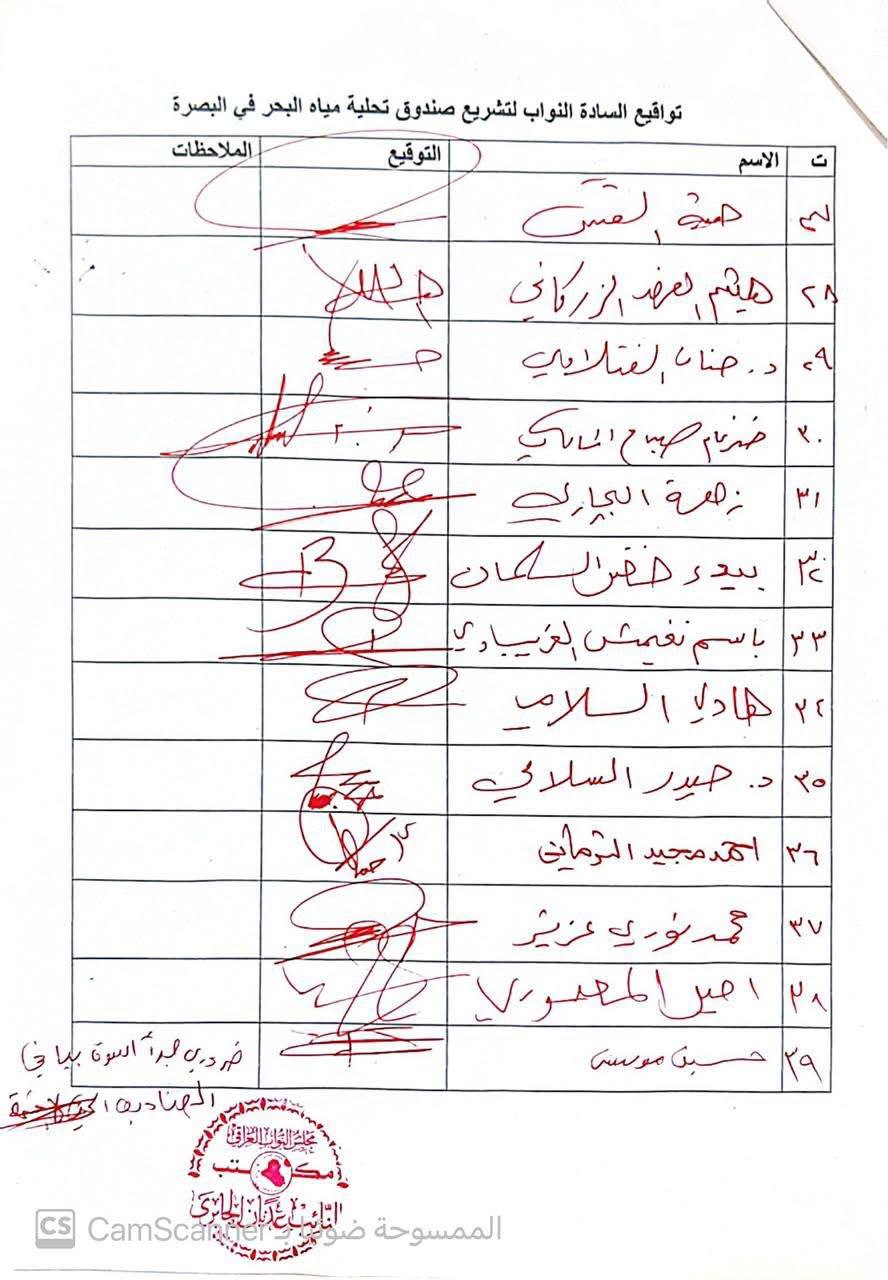 تواقيع السادة النواب لتشريع صندوق تحلية مياه البحر في البصرة
ت الاسم التوقيع الملاحظات
٢٧
٢٨ هيثم الزركاني
٢٩ د. حنان الفتلاوي
٣٠ ضرغام المالكي
٣١ زهرة البجاري
٣٢ بيداء خضر السلمان
٣٣ باسم نغيمش الغريباوي
٣٤ هادي السلامي
٣٥ د. حيدر السلامي
٣٦ احمد مجيد الشرماني
٣٧ محمد نوري عزيز
٣٨ المنصوري
٣٩ حسين موسى
ضروري جداً اسوة بباقي
الصناديق
مجلس النواب العراقي
مكتب
النائب عدنان الجابري
CS CamScanner الممسوحة ضوئيا بـ